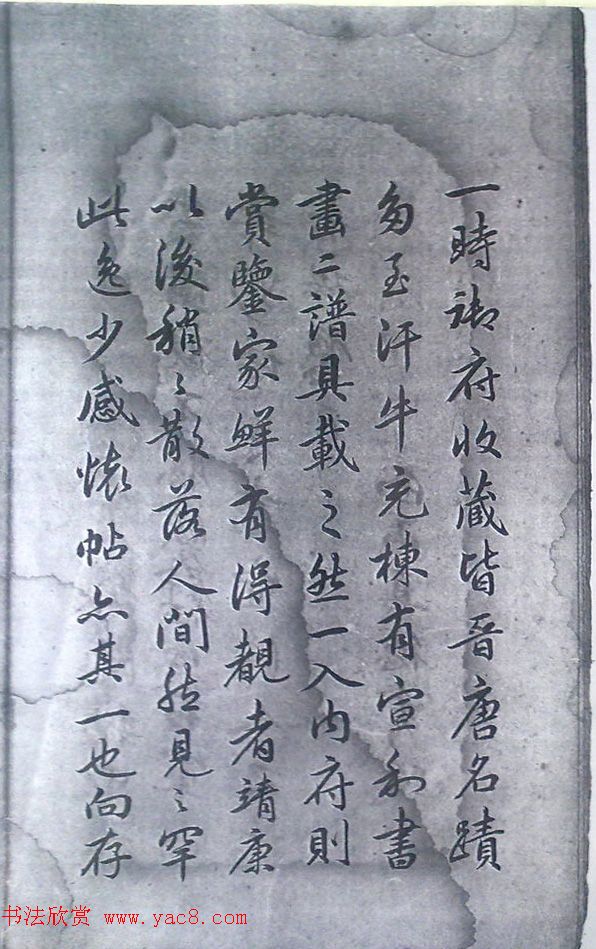 一時御府收蔵皆晋唐名蹟
多至汗牛充棟有宣和書
畫二譜具載之然一入内府則
賞鑒家鮮有得覩者靖康
以後稍〻散落人間然見之罕
此逸少感懷帖亦其一也向存
书法欣赏 www.yac8.com